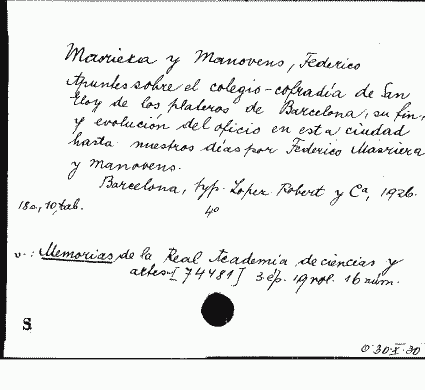 Masriera y Manovens, Federico
Apuntes sobre el colegio-cofradía de San
Eloy de los plateros de Barcelona, su fin,
y evolución del oficio en esta ciudad
hasta nuestros días por Federico Masriera
y Manovens.
Barcelona, typ. Lopez Robert y Cª, 1926.
4º
v.: Memorias de la Real Academia de ciencias y
artes [74481] 3.ép. 19 vol. 16 núm.
S
0·30·X·30